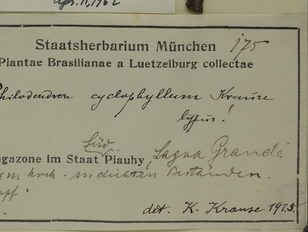 Apr. 11, 1962
Staatsherbarium München 175
Plantae Brasilianae a Luetzelburg collectae
Philodendron cyclophyllum Krause
typus!
Süd
ngazone im Staat Piauhy, Lagoa Grande
m hoch. in dichten Beständen.
det. K. Krause 1925